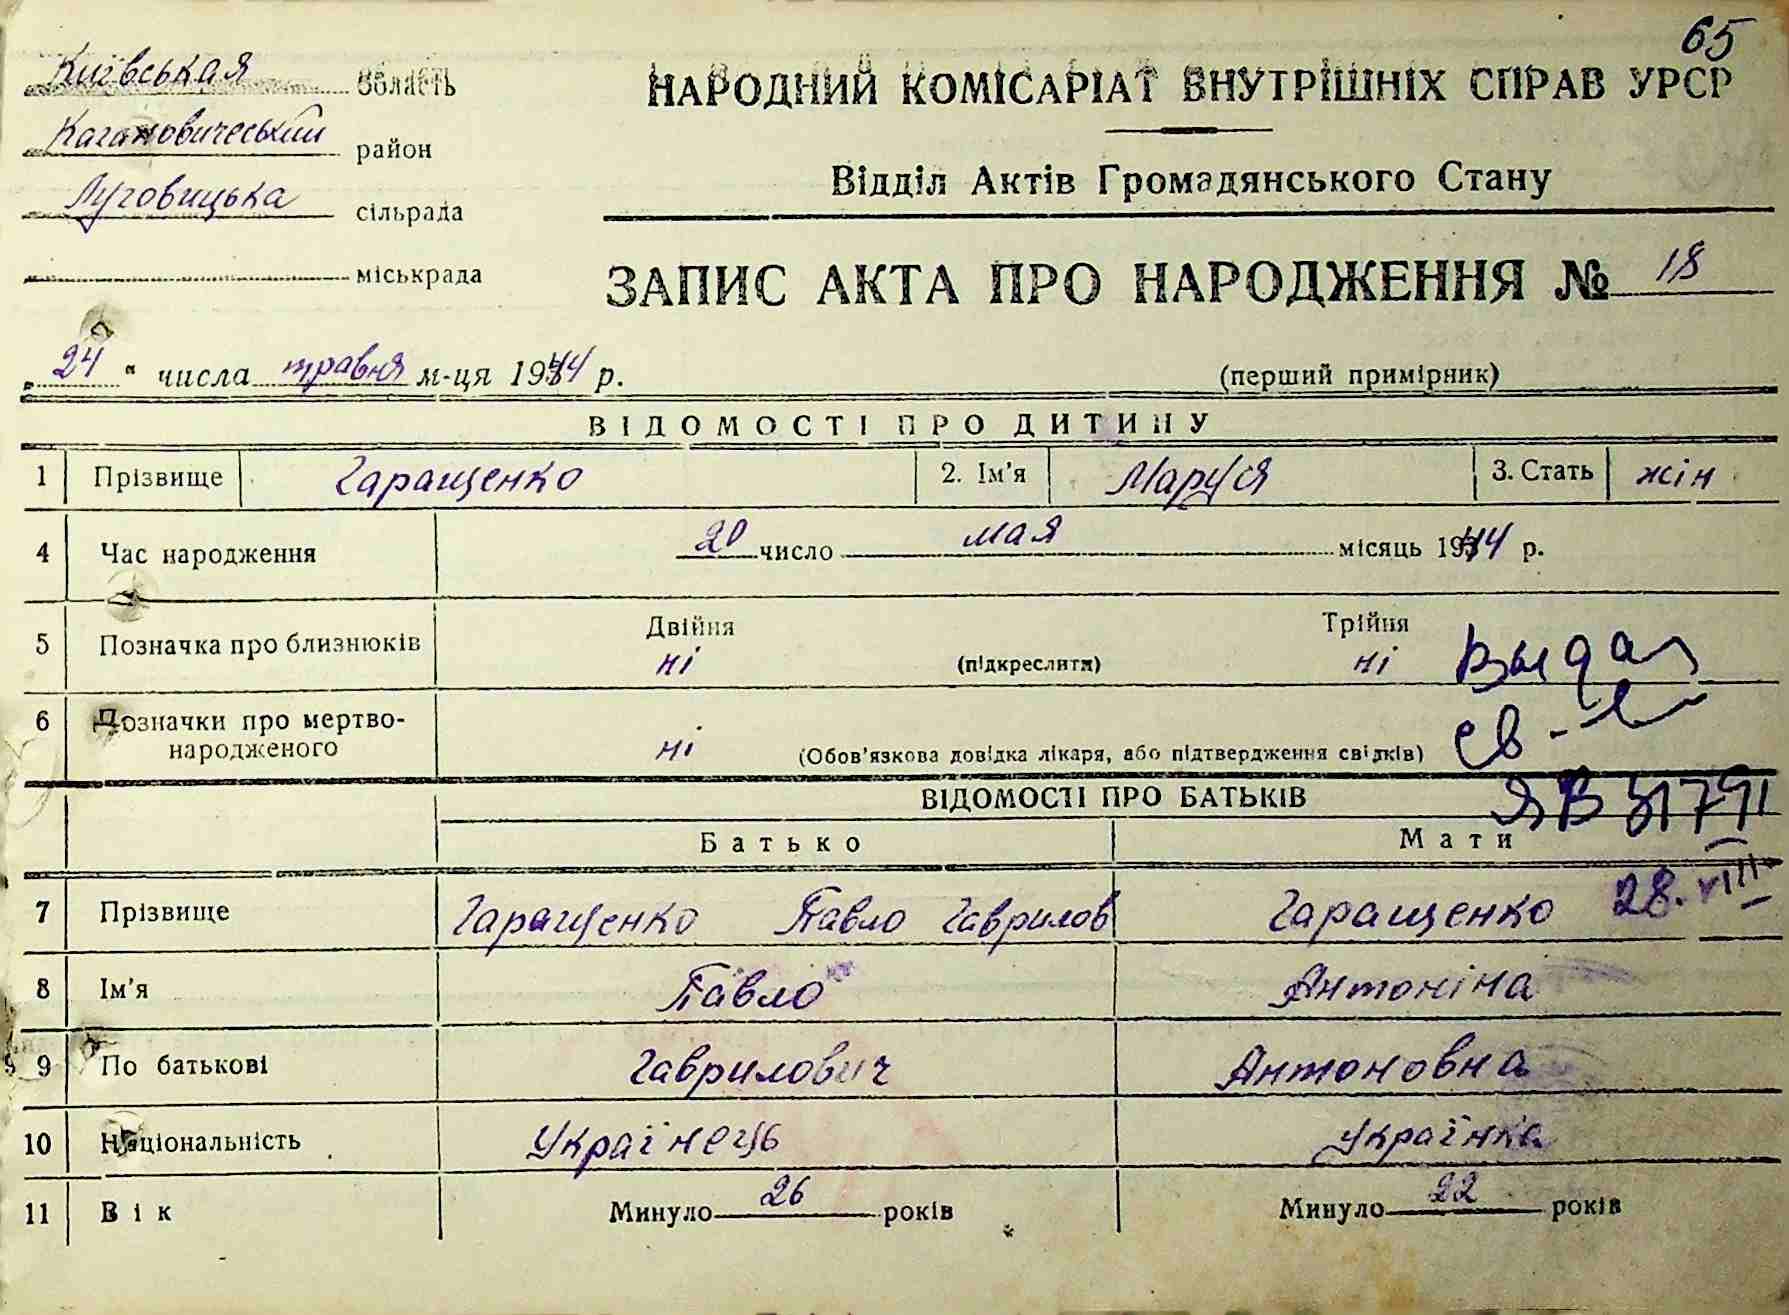 65
Київськая область
НАРОДНИЙ КОМІСАРІАТ ВНУТРІШНІХ СПРАВ УРСР
Кагановичеський район
Відділ Актів Громадянського Стану
Луговицька сільрада
міськрада
ЗАПИС АКТА ПРО НАРОДЖЕННЯ № 18
„24" числа травня м-ця 1944 р.
(перший примірник)
ВІДОМОСТІ ПРО ДИТИНУ
1 Прізвище Гаращенко 2. Ім'я Маруся 3. Стать жін
4 Час народження 20 число мая місяць 1944 р.
5 Позначка про близнюків Двійня ні (підкреслити) Трійня ні
Выдан
6 Позначки про мертво-
народженого ні (Обов'язкова довідка лікаря, або підтвердження свідків)
св-
ВІДОМОСТІ ПРО БАТЬКІВ
ЯВ
Батько Мати
28.VIII
7 Прізвище Гаращенко Павло Гаврилов Гаращенко
8 Ім'я Павло Антоніна
9 По батькові Гаврилович Антоновна
10 Національність Українець Українка
11 Вік Минуло 26 років Минуло 22 років